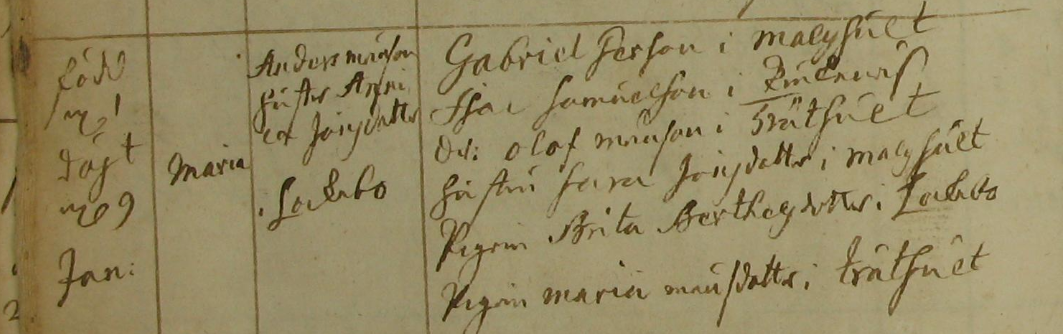 född
döpt
Jan:
Maria
Anders månson
hustr
Jonsdotter
Lackbo
Gabriel Person i malgsuet
Isac Samuelson i
dr: olof månson i Trätsuet
hustru Sara Jonsdotter i malgsuet
Pigan Brita Berthegsdotter i Lackbo
Pigan maria mansdotter i trätsuet